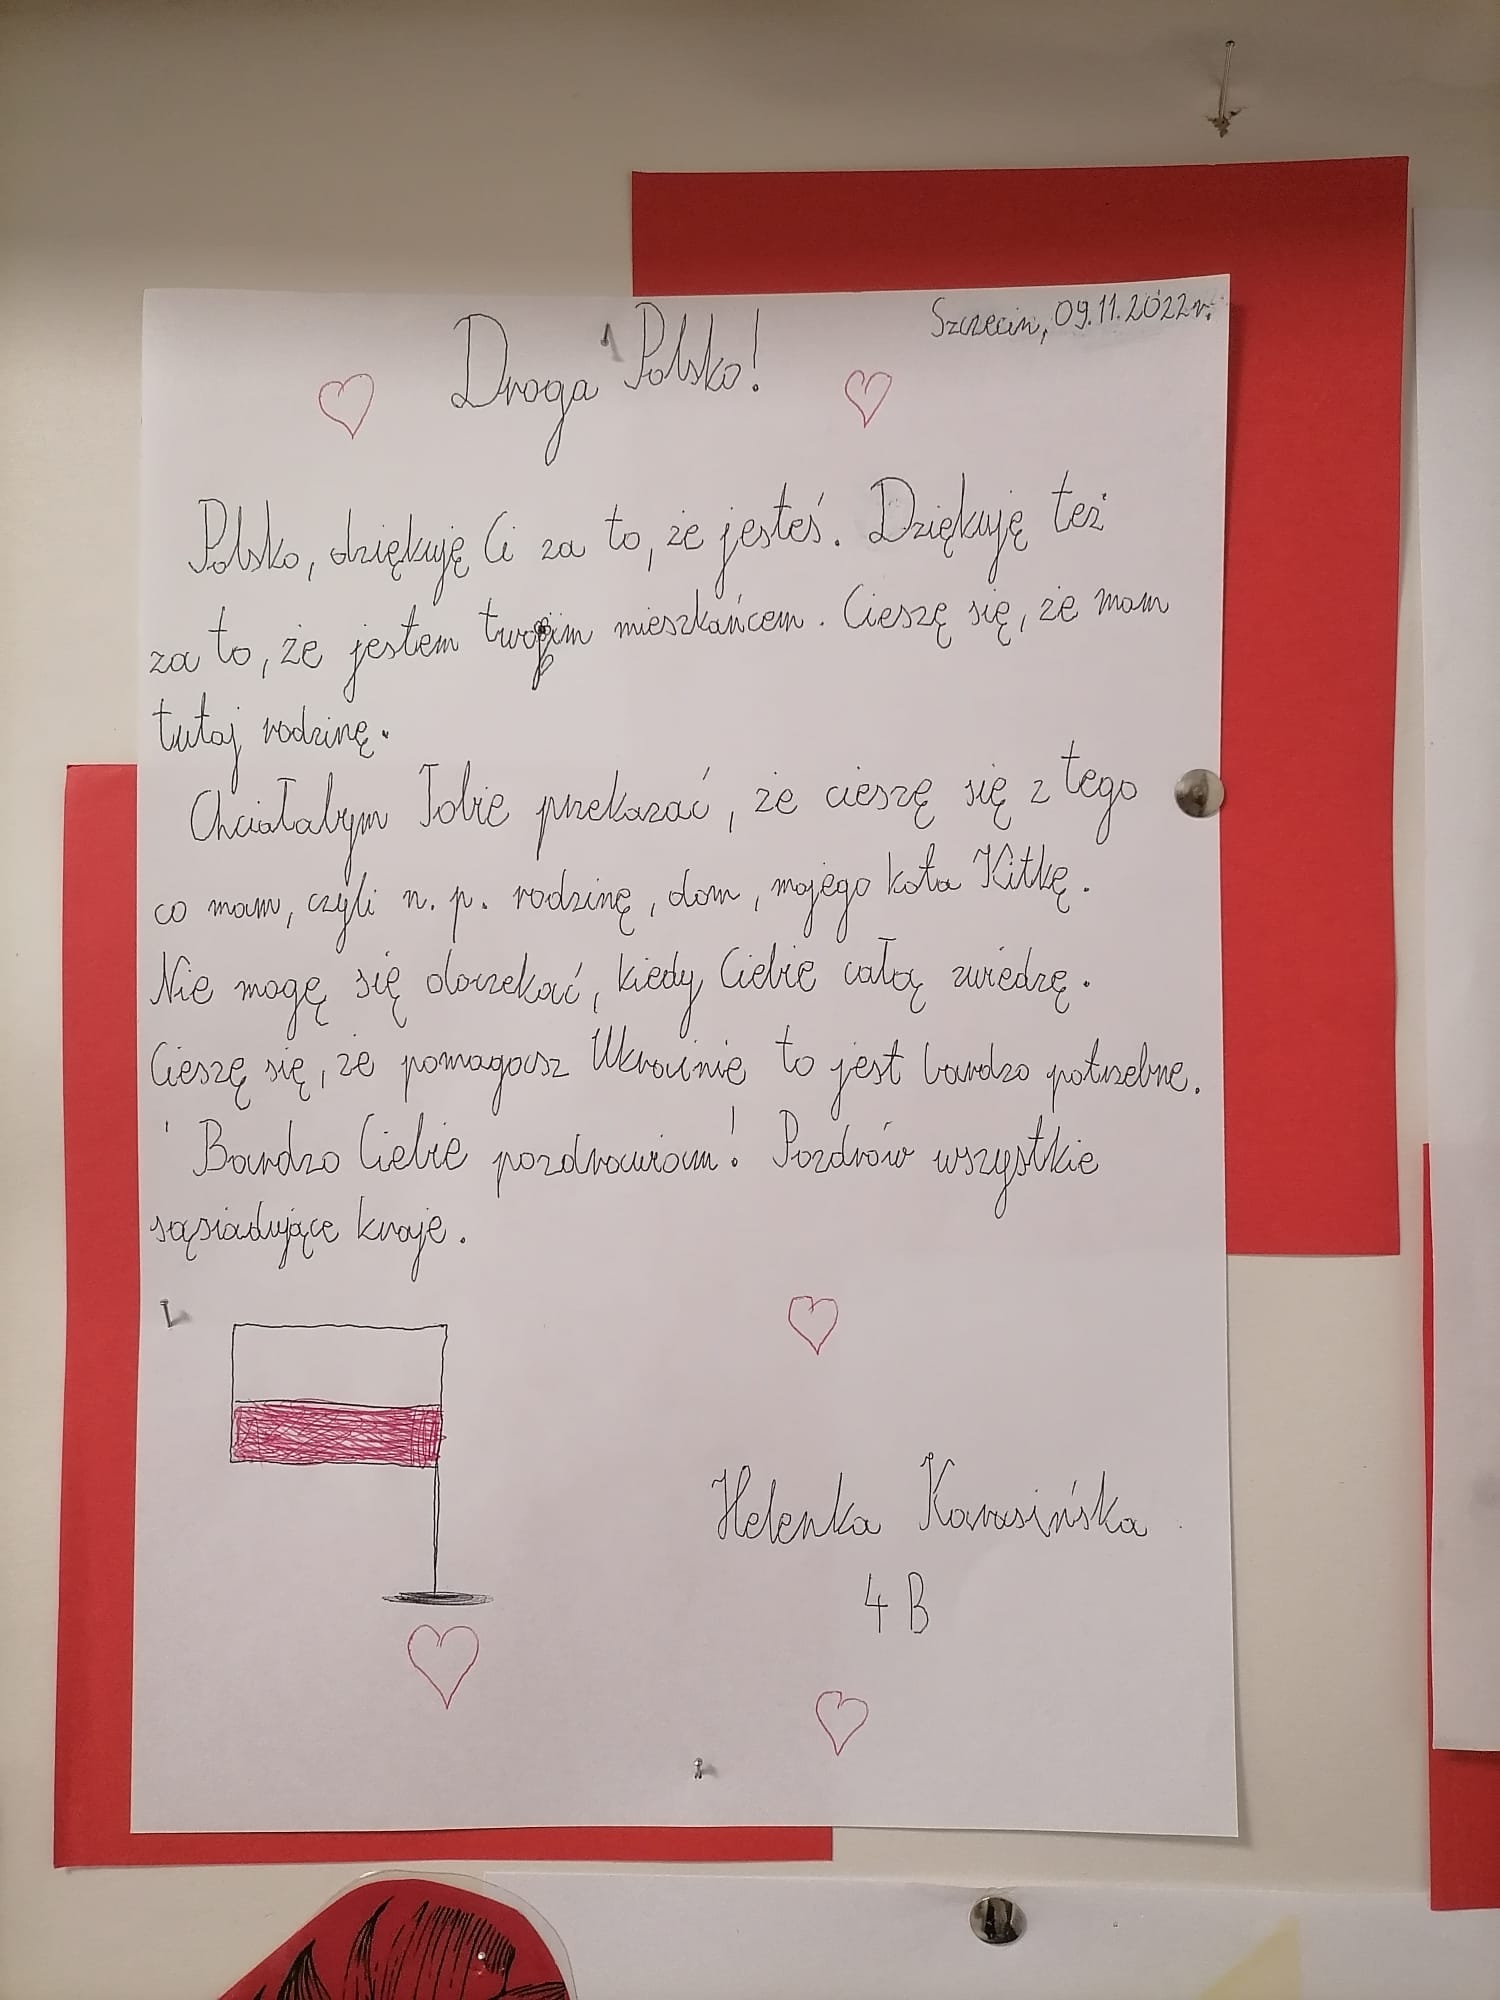 Szczecin, 09.11.2022r.
Droga Polsko!
Polsko, dziękuję Ci za to, że jesteś. Dziękuję też
za to, że jestem twoim mieszkańcem. Cieszę się, że mam
tutaj rodzinę.
Chciałabym Tobie przekazać, że cieszę się z tego
co mam, czyli n. p. rodzinę, dom, mojego kota Kitkę.
Nie mogę się doczekać, kiedy Ciebie całą zwiedzę.
Cieszę się, że pomagasz Ukrainie to jest bardzo potrzebne.
Bardzo Ciebie pozdrawiam! Pozdrów wszystkie
sąsiadujące kraje.
Helenka Karasińska
4 B